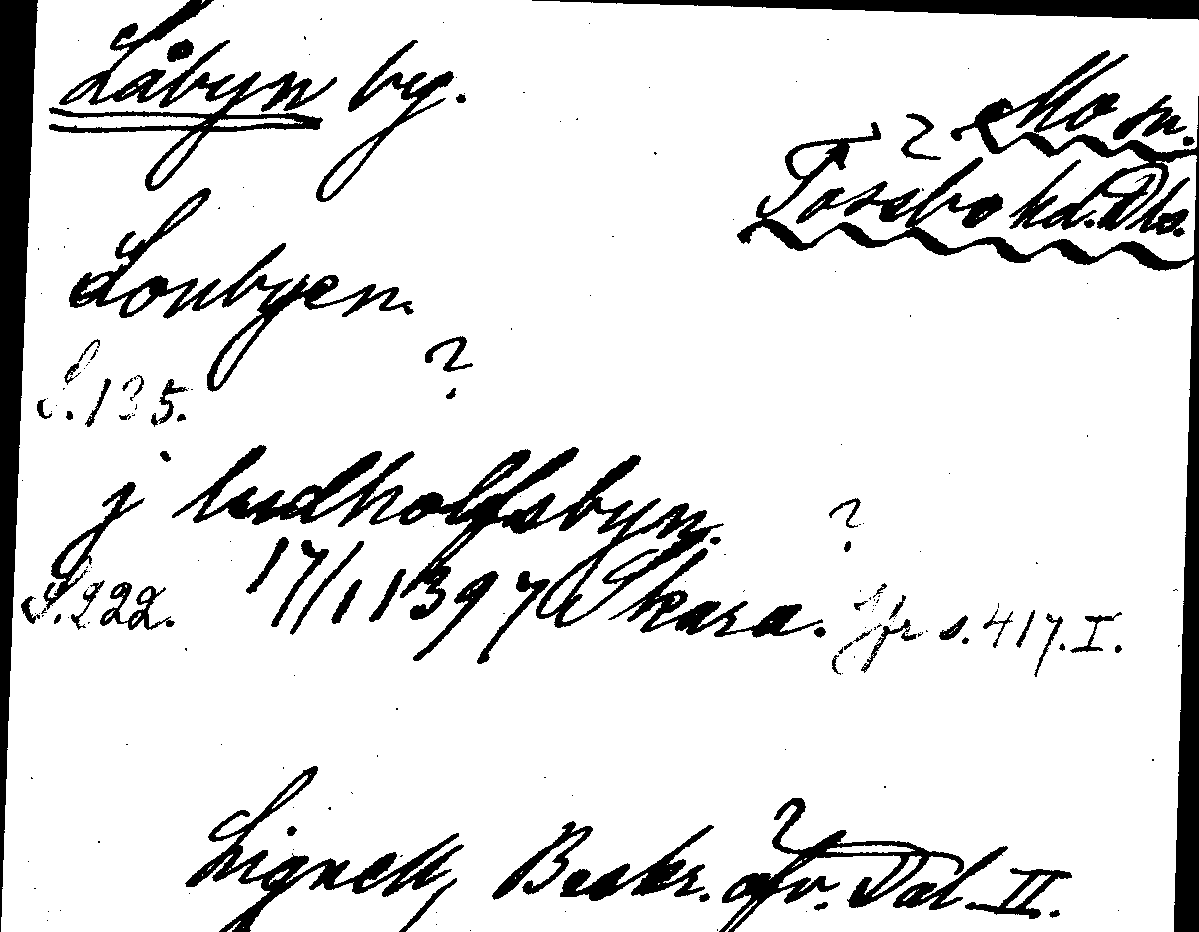 Låbyn by.
? Mo sn.
Tössbo hd. Dls.
Loubyen.
S. 135. ?
j ludholfsbyn. ?
S. 222. 17/1 1397 Skara. Jfr s. 417. I.
Lignell, Beskr. öfv. Dal. II.